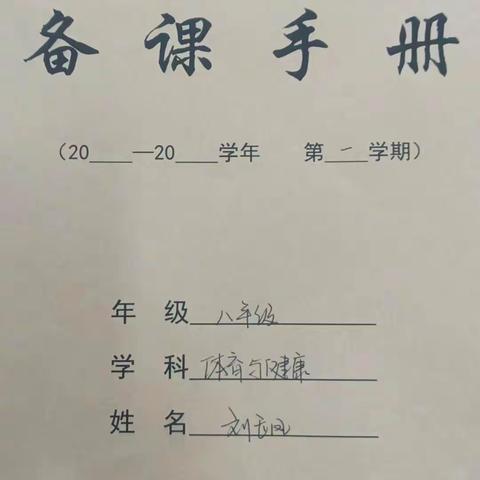 备课手册
（20____—20____学年 第一学期）
年 级 八年级
学 科 体育与健康
姓 名 刘长凤